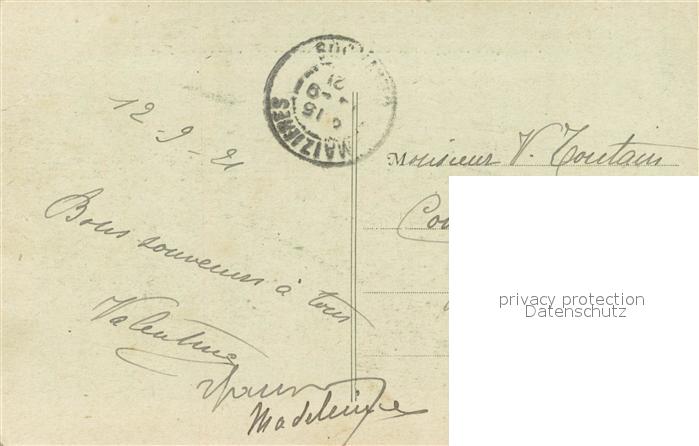 12-9-21
Bons souvenirs à tous
Valentine
Madeleine
MAIZIERES
15
-9
21
Monsieur V. Toutain
privacy protection
Datenschutz